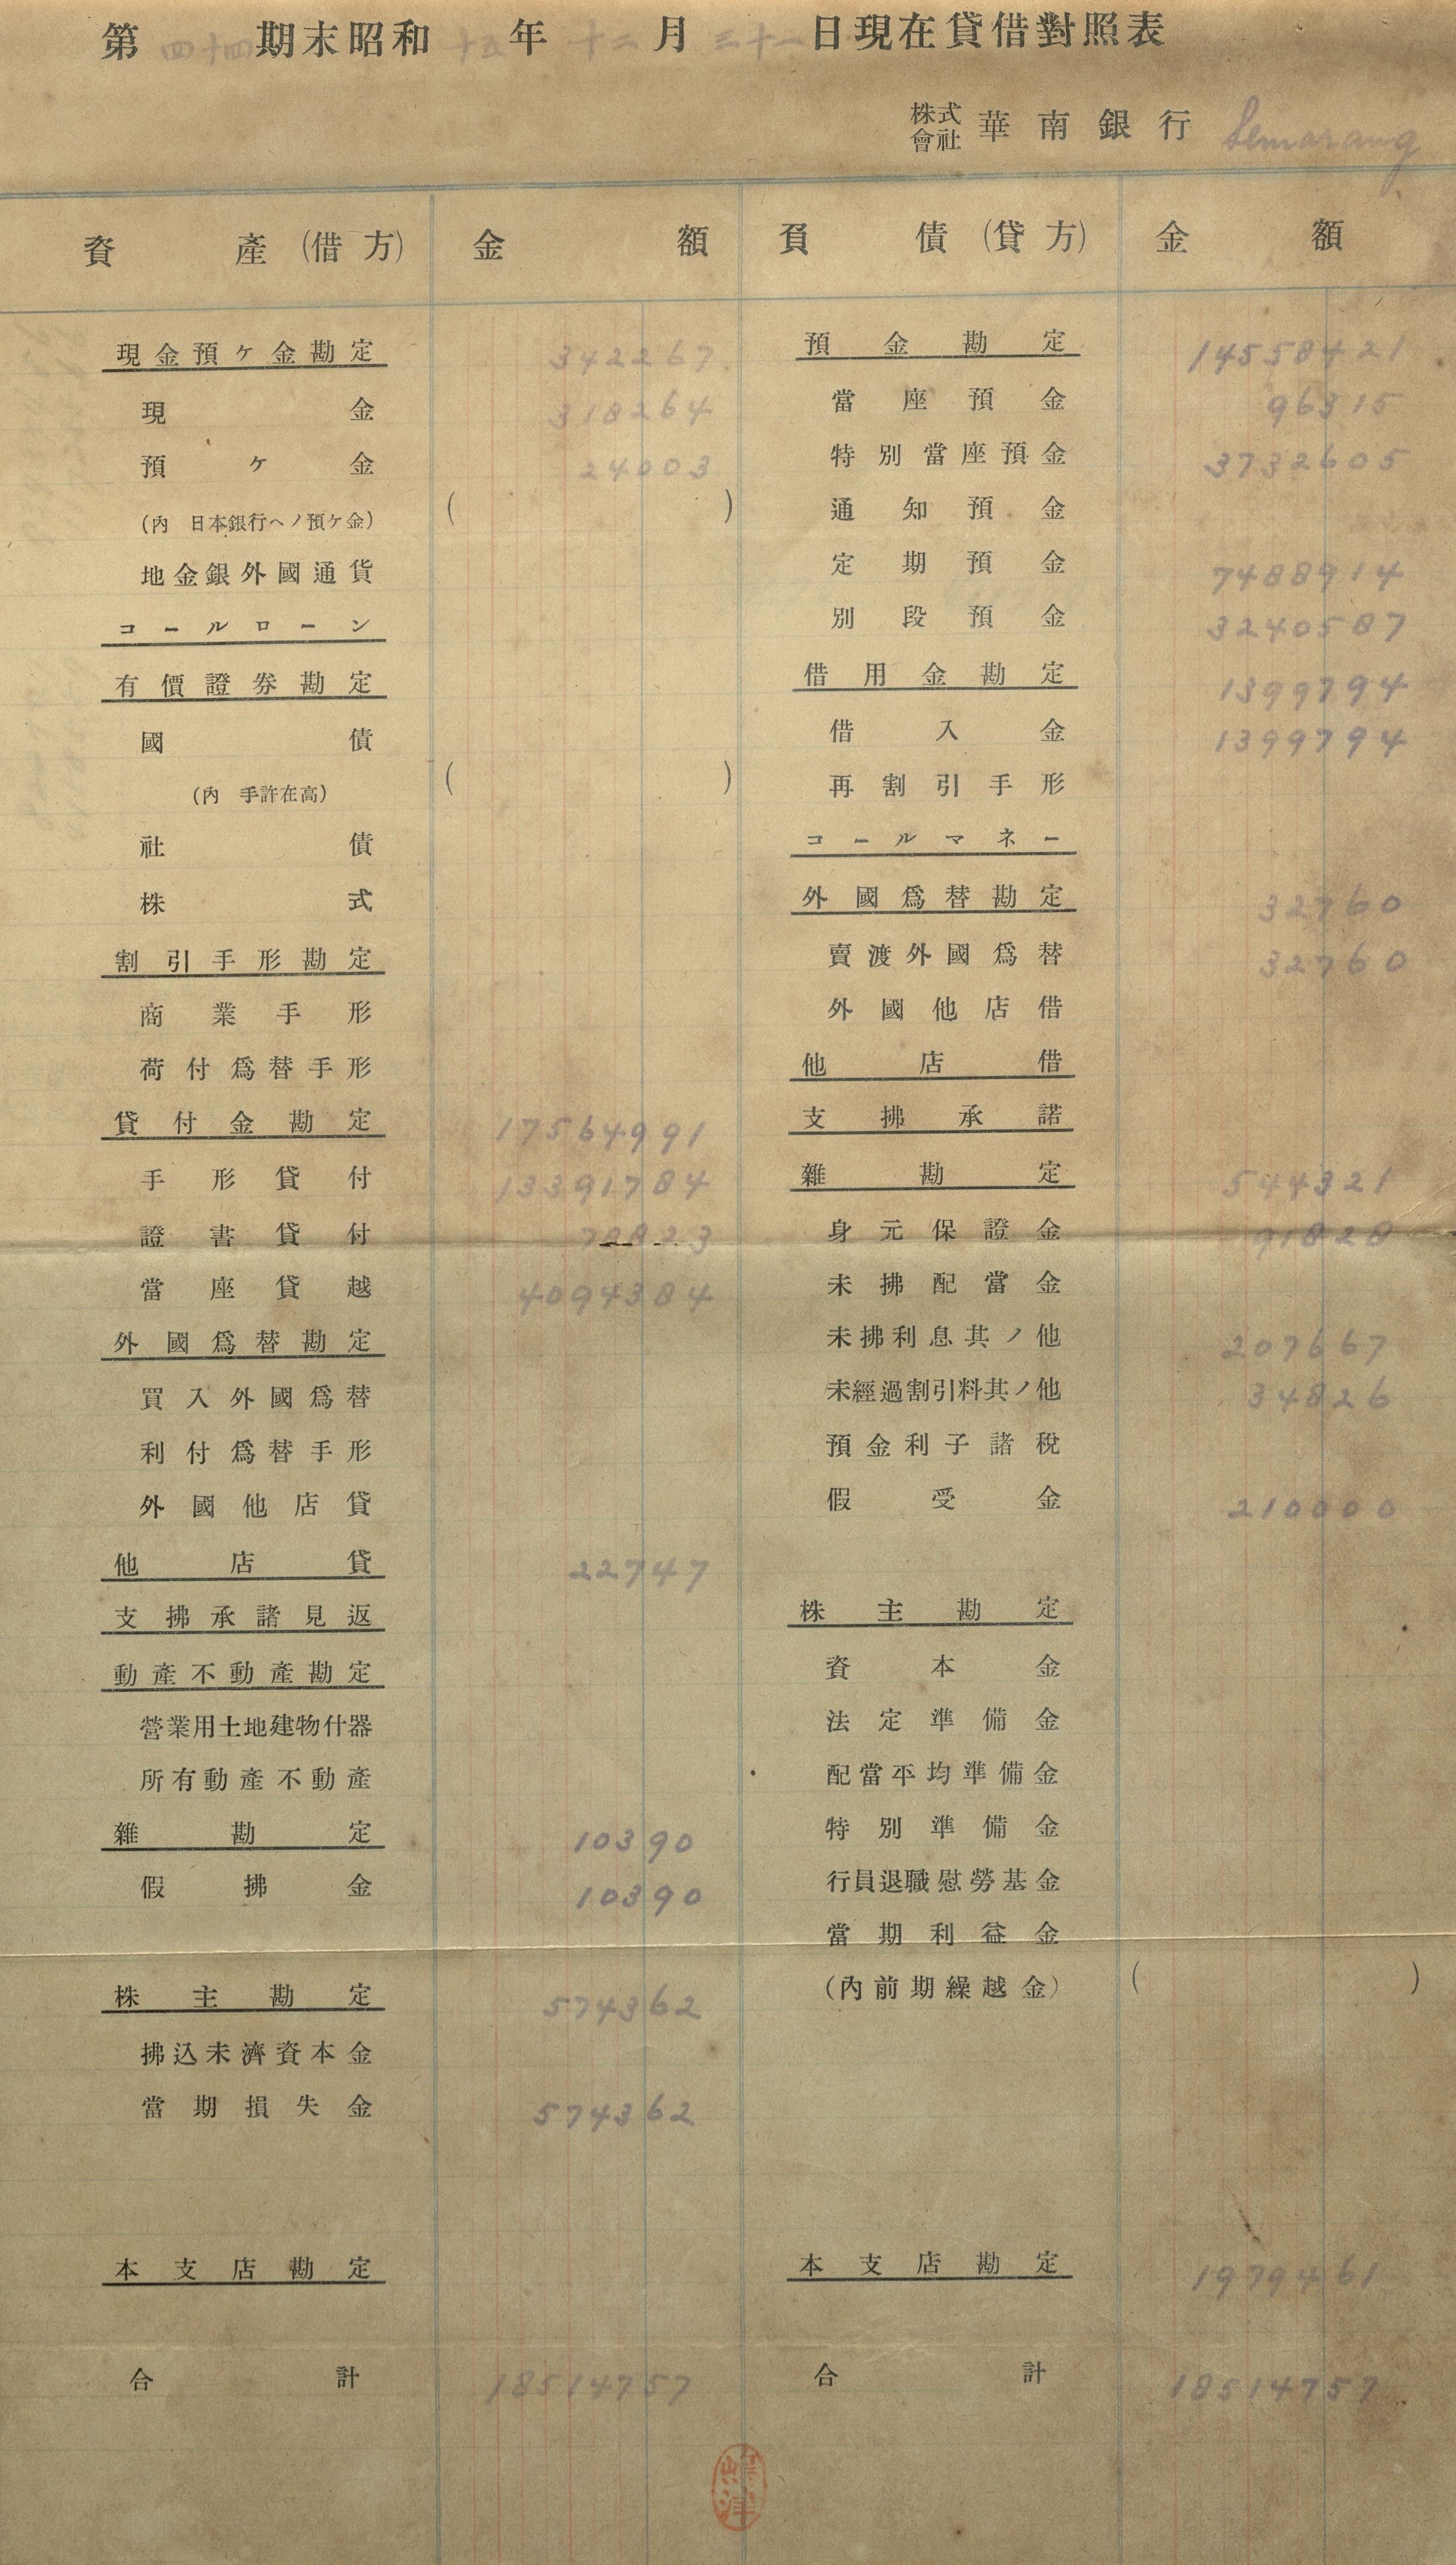 第四十四期末昭和十五年十二月三十一日現在貸借對照表
株式會社 華南銀行 Semarang
資產(借方) 金額 負債(貸方) 金額
現金預ケ金勘定 342267
現金 318264
預ケ金 24003
(內 日本銀行ヘノ預ケ金) ( )
地金銀外國通貨
コールローン
有價證券勘定
國債
(內 手許在高) ( )
社債
株式
割引手形勘定
商業手形
荷付爲替手形
貸付金勘定 17564991
手形貸付 13391784
證書貸付 78823
當座貸越 4094384
外國爲替勘定
買入外國爲替
利付爲替手形
外國他店貸
他店貸 22747
支拂承諸見返
動產不動產勘定
營業用土地建物什器
所有動產不動產
雜勘定 10390
假拂金 10390
株主勘定 574362
拂込未濟資本金
當期損失金 574362
本支店勘定
合計 18514757
預金勘定 14558421
當座預金 96315
特別當座預金 3732605
通知預金
定期預金 7488914
別段預金 3240587
借用金勘定 1399794
借入金 1399794
再割引手形
コールマネー
外國爲替勘定 32760
賣渡外國爲替 32760
外國他店借
他店借
支拂承諾
雜勘定 544321
身元保證金 91828
未拂配當金
未拂利息其ノ他 207667
未經過割引料其ノ他 34826
預金利子諸稅
假受金 210000
株主勘定
資本金
法定準備金
配當平均準備金
特別準備金
行員退職慰勞基金
當期利益金
(內前期繰越金) ( )
本支店勘定 1979461
合計 18514757